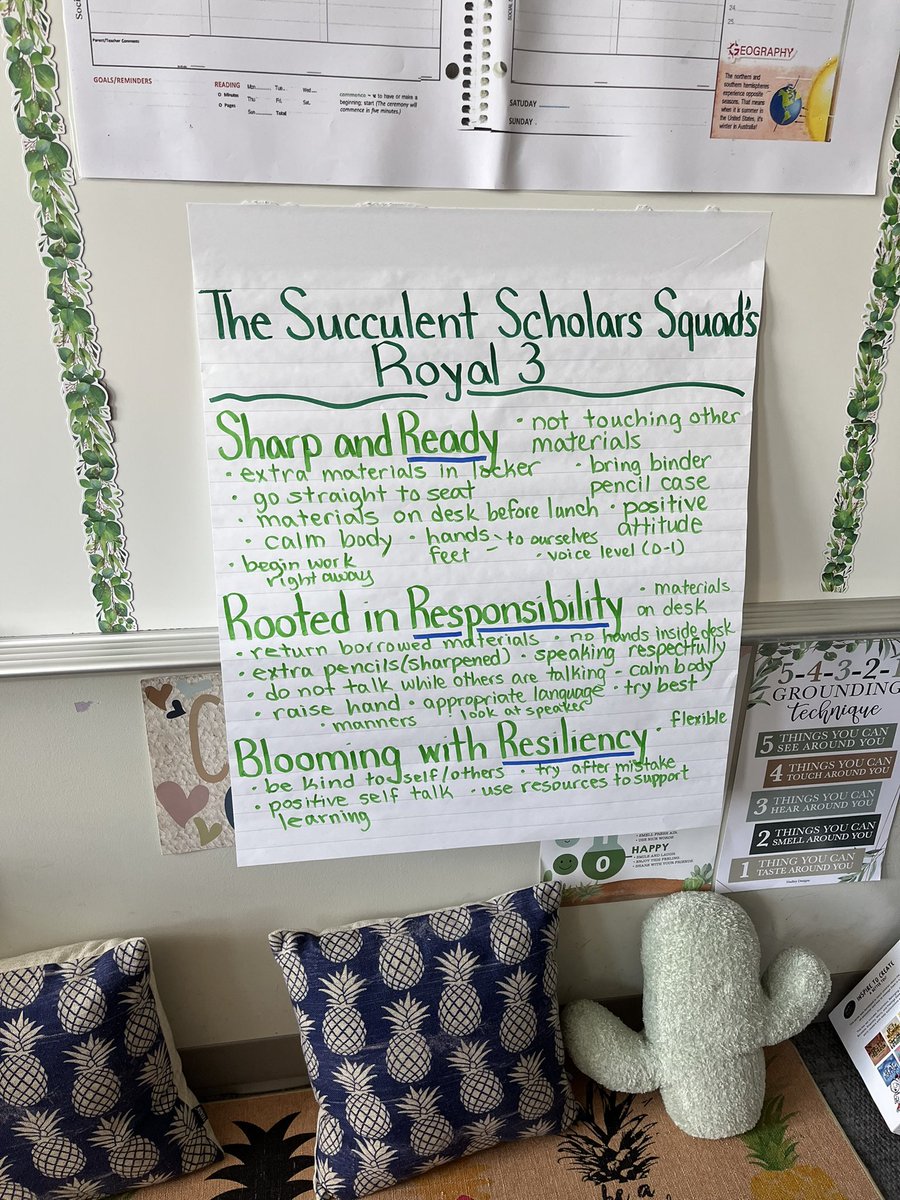 Parent/Teacher Comments
GOALS/REMINDERS
READING
Minutes
Pages
Mon. Tue. Wed.
Thu. Fri. Sat.
Sun. Total
commence ~ v. to have or make a
beginning; start (The ceremony will
commence in five minutes.)
SATUDAY
SUNDAY
24.
25.
GEOGRAPHY
The northern and
southern hemispheres
experience opposite
seasons. That means
when it is summer in
the United States, it's
winter in Australia!
The Succulent Scholars Squad's
Royal 3
Sharp and Ready
• not touching other
materials
• extra materials in locker
• bring binder
pencil case
• go straight to seat
• materials on desk before lunch
• positive
attitude
• calm body
• hands
feet
to ourselves
• voice level (0-1)
• begin work
right away
Rooted in Responsibility
• materials
on desk
• return borrowed materials • no hands inside desk
• extra pencils (sharpened) • speaking respectfully
• do not talk while others are talking • calm body
• raise hand • appropriate language • try best
• manners
look at speaker
Blooming with Resiliency
• flexible
• be kind to self/others • try after mistake
• positive self talk • use resources to support
learning
5-4-3-2-1
GROUNDING
technique
5 THINGS YOU CAN
SEE AROUND YOU
4 THINGS YOU CAN
TOUCH AROUND YOU
3 THINGS YOU CAN
HEAR AROUND YOU
2 THINGS YOU CAN
SMELL AROUND YOU
1 THING YOU CAN
TASTE AROUND YOU
• SMELL FRESH AIR
• USE NICE WORDS
0
HAPPY
• SMILE AND LAUGH
• ENJOY THIS FEELING
• SHARE WITH YOUR FRIENDS
INSPIRE TO CREATE
be a